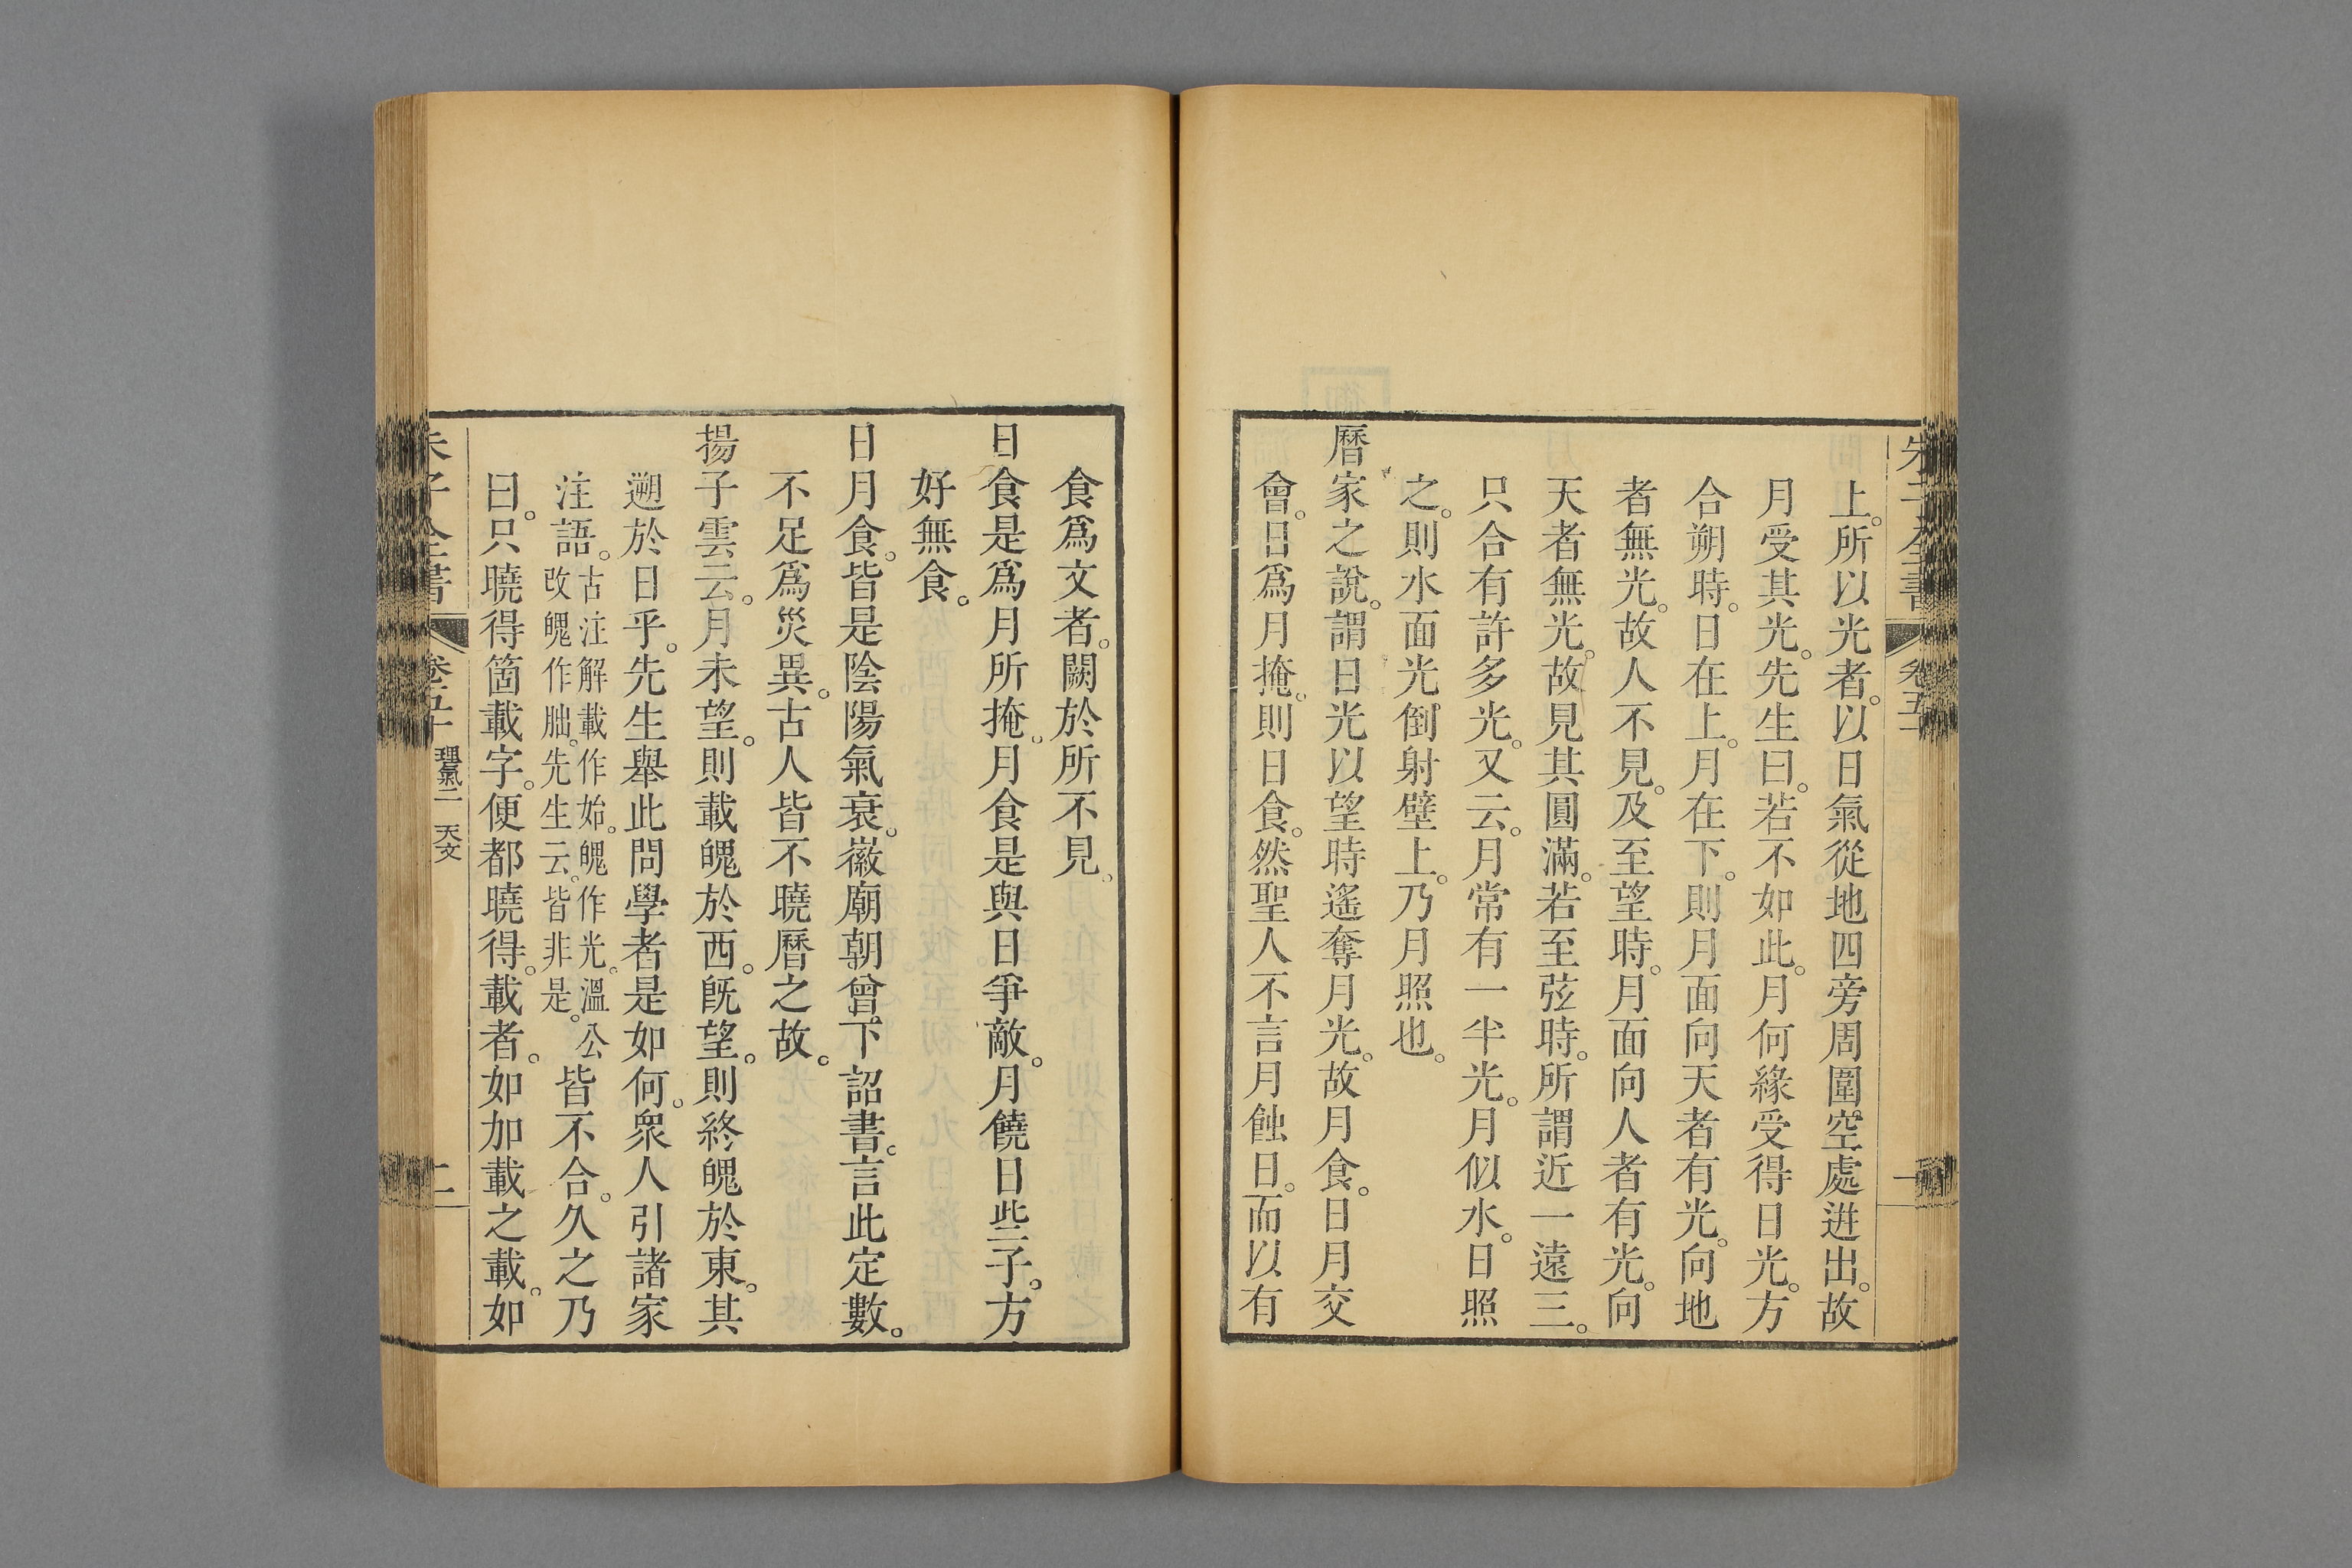 朱子全書 卷五十 一
上。所以光者。以日氣從地四旁周圍空處迸出。故
月受其光。先生曰。若不如此。月何緣受得日光。方
合朔時。日在上。月在下。則月面向天者有光。向地
者無光。故人不見。及至望時。月面向人者有光。向
天者無光。故見其圓滿。若至弦時。所謂近一遠三。
只合有許多光。又云。月常有一半光。月似水。日照
之。則水面光倒射壁上。乃月照也。
曆家之說。謂日光以望時遙奪月光。故月食。日月交
會。日爲月掩。則日食。然聖人不言月蝕日。而以有
食爲文者。闕於所不見。
日食是爲月所掩。月食是與日爭敵。月饒日些子。方
好無食。
日月食。皆是陰陽氣衰。徽廟朝曾下詔書。言此定數。
不足爲災異。古人皆不曉曆之故。
揚子雲云。月未望。則載魄於西。旣望。則終魄於東。其
遡於日乎。先生舉此問學者是如何。衆人引諸家
注語。古注解載作始。魄作光。溫公
改魄作朏。先生云。皆非是。皆不合。久之乃
曰。只曉得箇載字。便都曉得。載者。如加載之載。如
朱子全書 卷五十 理氣二 天文 二